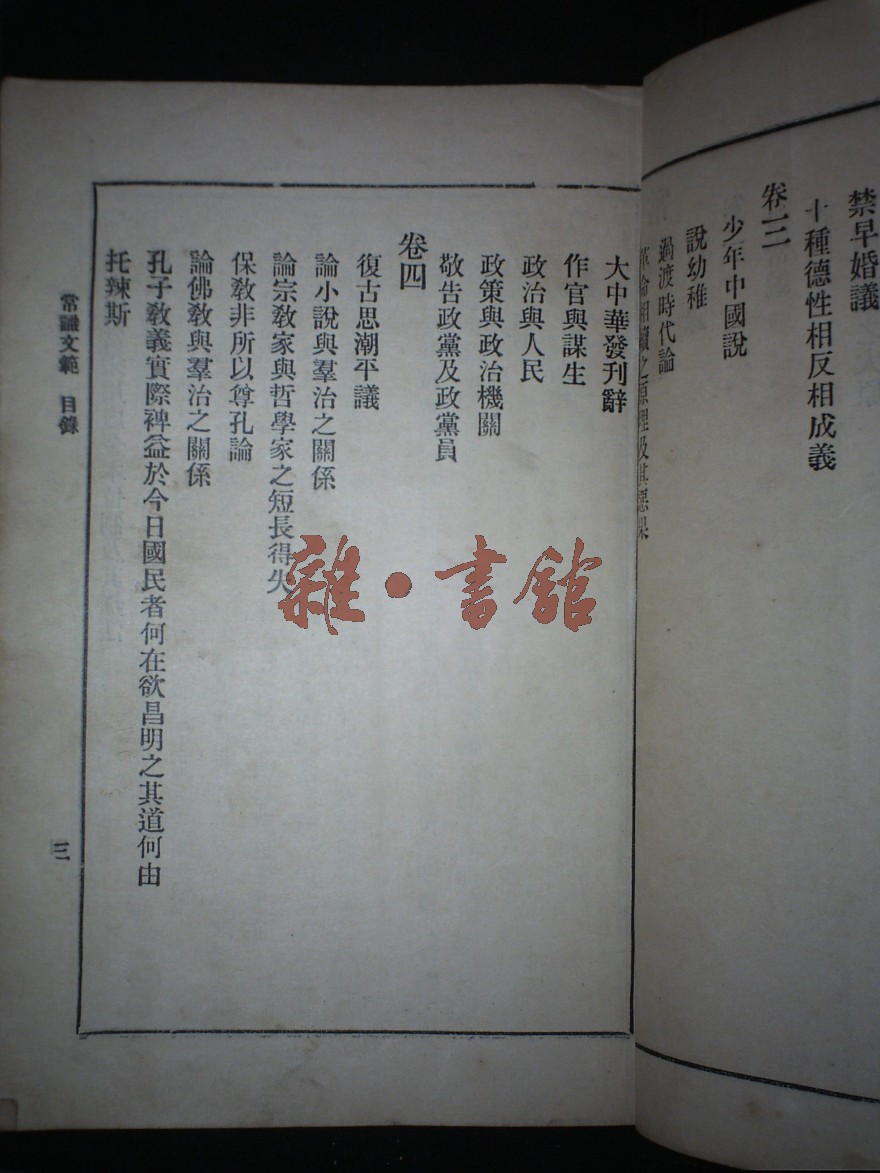 禁早婚議
十種德性相反相成義
卷三
少年中國說
說幼稚
過渡時代論
革命相續之原理及其惡果
大中華發刊辭
作官與謀生
政治與人民
政策與政治機關
敬告政黨及政黨員
卷四
復古思潮平議
論小說與羣治之關係
論宗教家與哲學家之短長得失
保教非所以尊孔論
論佛教與羣治之關係
孔子教義實際裨益於今日國民者何在欲昌明之其道何由
托辣斯
常識文範 目錄
三
雜·書館